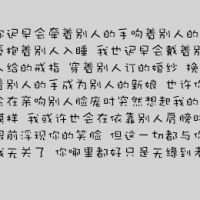 你迟早会牵着别人的手吻着别人的
要抱着别人入睡 我也迟早会戴着别
人给的戒指 穿着别人订的婚纱 挽
着别人的手成为别人的新娘 也许你
会在亲吻别人脸庞时突然想起我的
模样 我或许也会在依靠别人肩膀时
眼前浮现你的笑脸 但这一切都与你
我无关了 你哪里都好只是无缘到老